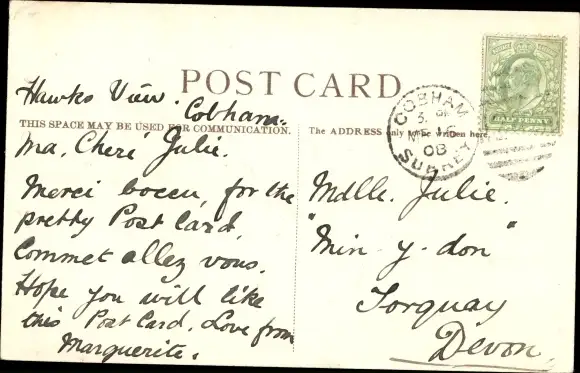 POST CARD
Hawks View.
Cobham.
THIS SPACE MAY BE USED FOR COMMUNICATION.
Ma. Cheri Julie.
Merci boceu, for the
pretty Post Card,
Commet allez vous.
Hope you will like
this Post Card. Love from
Marguerite.
The ADDRESS only to be written here.
Mdlle. Julie.
"Min-y-don"
Torquay
Devon.
COBHAM
08
SURREY
HALF PENNY